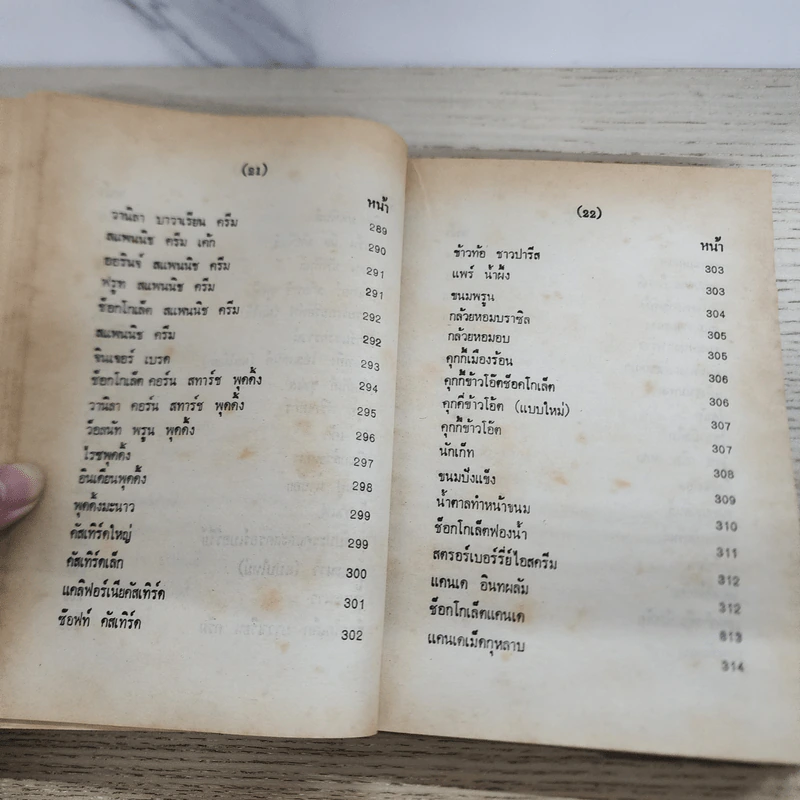 (21)
หน้า
วานิลา บาวาเรียน ครีม 289
สแพนนิช ครีม เค้ก 290
ออรินจ์ สแพนนิช ครีม 291
ฟรูท สแพนนิช ครีม 291
ช็อกโกเล็ต สแพนนิช ครีม 292
สแพนนิช ครีม 292
จินเจอร์ เบรด 293
ช็อกโกเล็ต คอร์น สทาร์ช พุดดั้ง 294
วานิลา คอร์น สทาร์ช พุดดั้ง 295
ว็อลนัท พรูน พุดดั้ง 296
ไรซพุดดั้ง 297
อินเดียนพุดดั้ง 298
พุดดั้งมะนาว 299
คัสเทิร์ดใหญ่ 299
คัสเทิร์ดเล็ก 300
แคลิฟอร์เนียคัสเทิร์ด 301
ซ๊อฟท์ คัสเทิร์ด 302
(22)
หน้า
ข้าวท้อ ชาวปารีส 303
แพร์ น้ำผึ้ง 303
ขนมพรูน 304
กล้วยหอมบราซิล 305
กล้วยหอมอบ 305
คุกกี้เมืองร้อน 306
คุกกี้ข้าวโอ๊ตช็อคโกเล็ต 306
คุกคี่ข้าวโอ๊ต (แบบใหม่) 307
คุกกี้ข้าวโอ๊ต 307
นักเก็ท 308
ขนมปังแข็ง 309
น้ำตาลทำหน้าขนม 310
ช็อกโกเล็ตฟองน้ำ 311
สตรอร์เบอร์รี่ย์ไอสครีม 312
แคนเด อินทผลัม 312
ช็อกโกเล็ตแคนเด 313
แคนเดเม็ดกุหลาบ 314